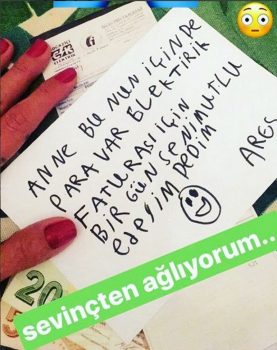 efk
ELEKTRİK
ANNE BU NUN İÇİNDE
PARA VAR ELEKTİRİK
FATURASI İÇİN
BİR GÜN SENİ MUTLU
EDPSİM DEDİM
ARES
20
sevinçten ağlıyorum...